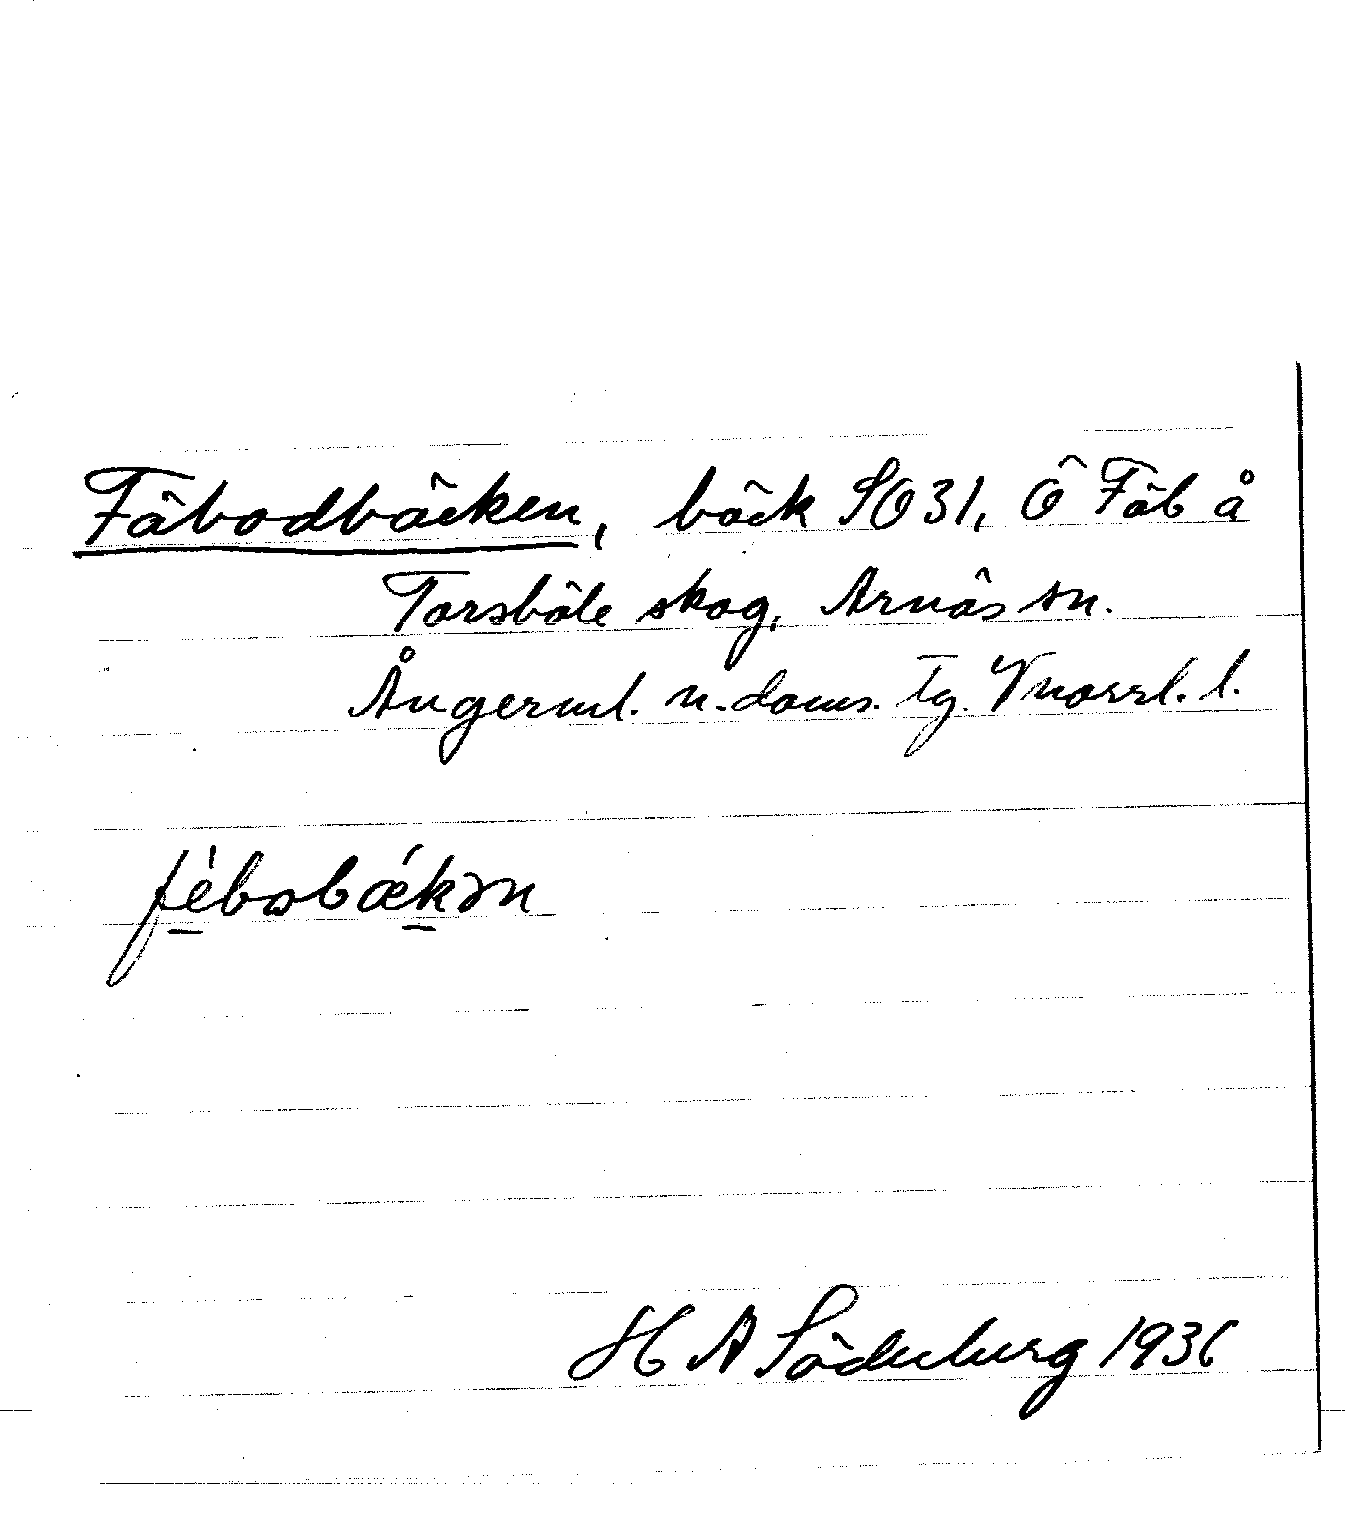 Fäbodbäcken, bäck SO31, Ö Fäb å
Torsböle skog, Arnäs sn.
Ångerml. n. doms. tg. Vnorrl. l.
fèbobǽkən
H A Söderberg 1936